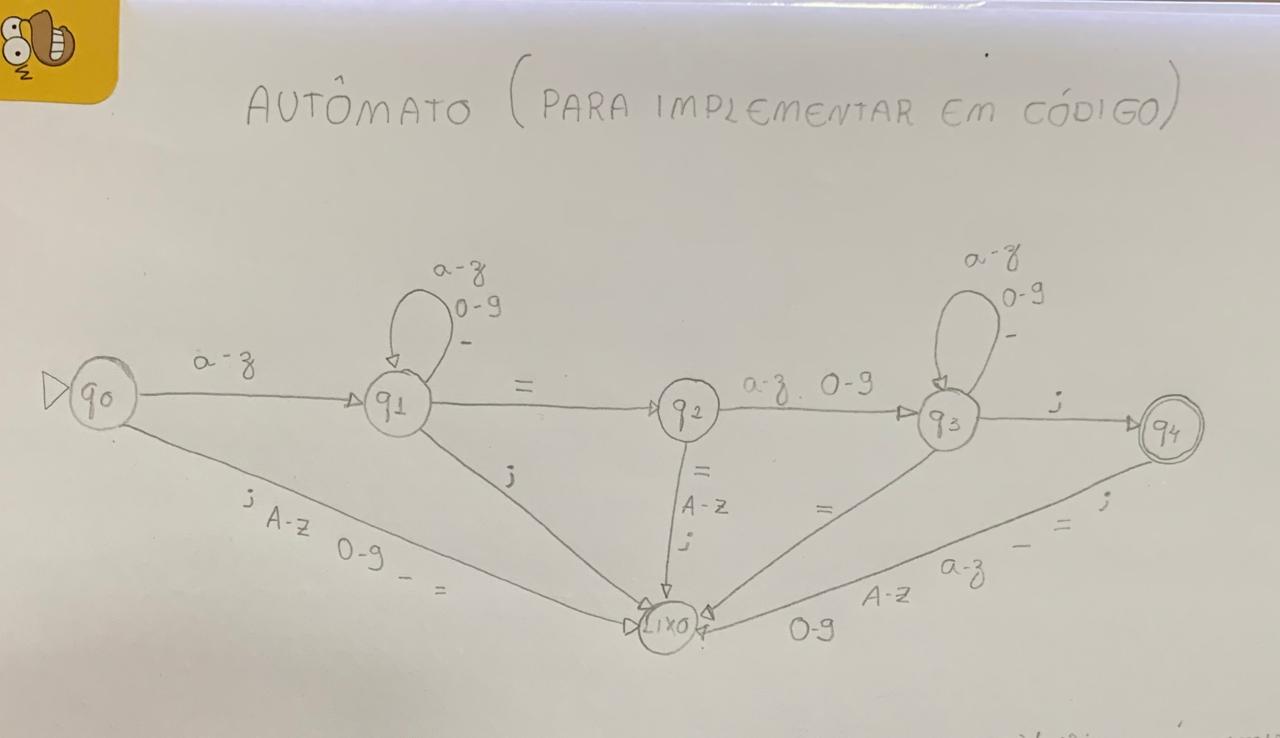 AUTÔMATO (PARA IMPLEMENTAR EM CÓDIGO)
a-z
0-9
-
a-z
0-9
-
a-z
=
a-z. 0-9
;
q0
q1
q2
q3
q4
;
=
A-Z
;
=
;
A-Z
0-9
-
=
;
=
-
a-z
A-Z
0-9
LIXO